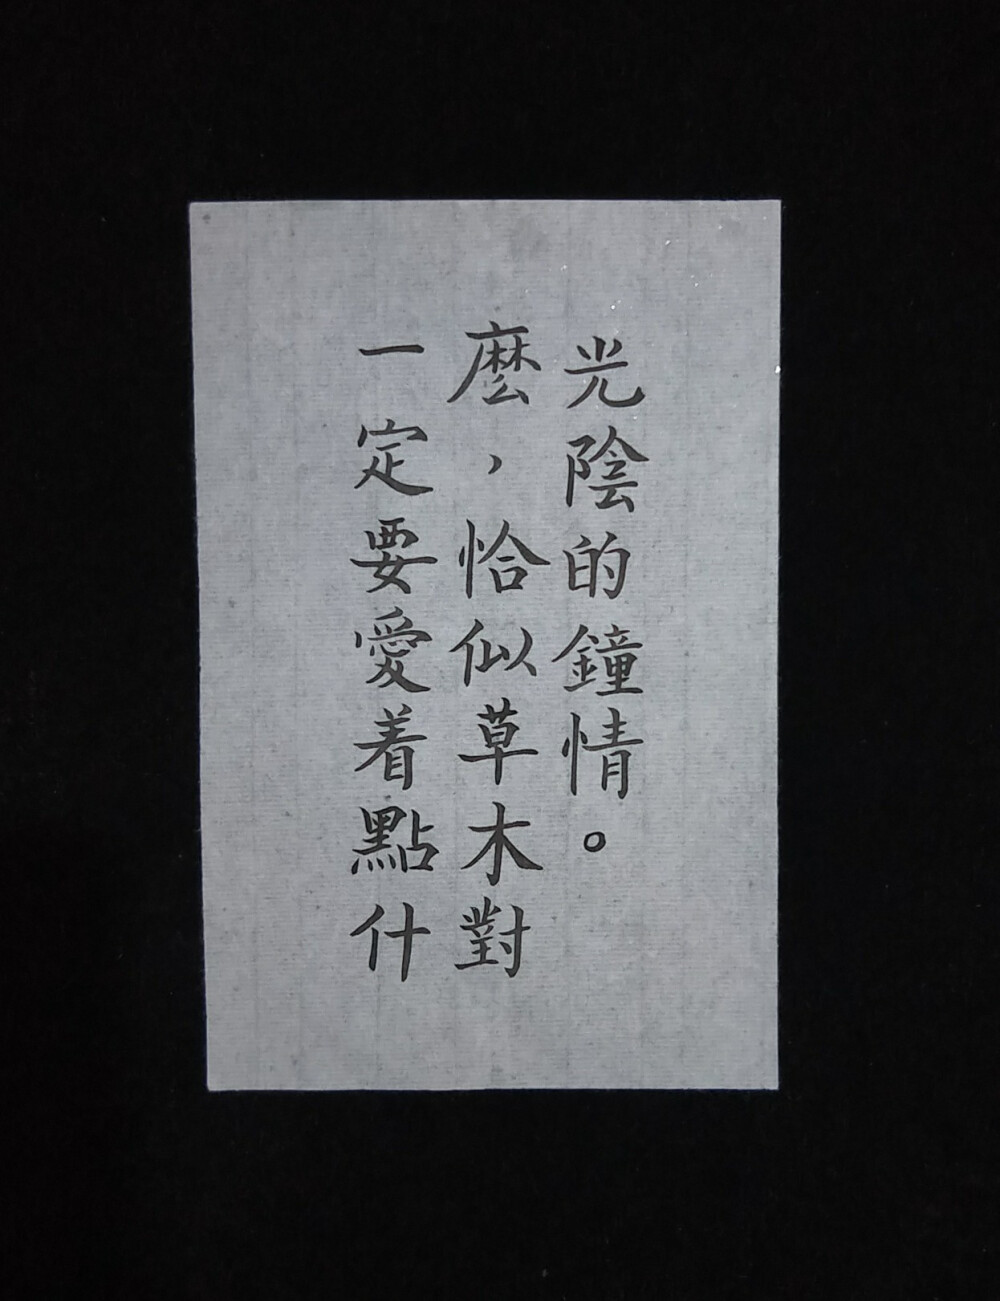 一定要愛着點什
麽，恰似草木對
光陰的鐘情。